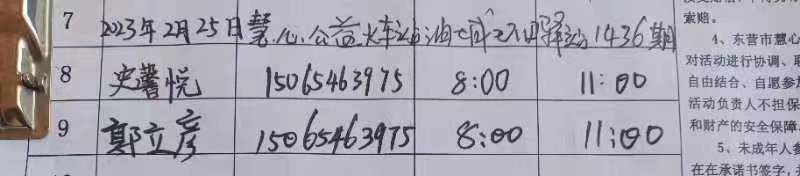 7 2023年2月25日慧心公益火车站油城义工驿站1436期
8 史馨悦 15065463975 8:00 11:00
9 郭立彦 15065463975 8:00 11:00
索赔。
4、东营市慧心
对活动进行协调、联
自由结合、自愿参加
活动负责人不担保
和财产的安全保障
5、未成年人参
在在承诺书签字，并